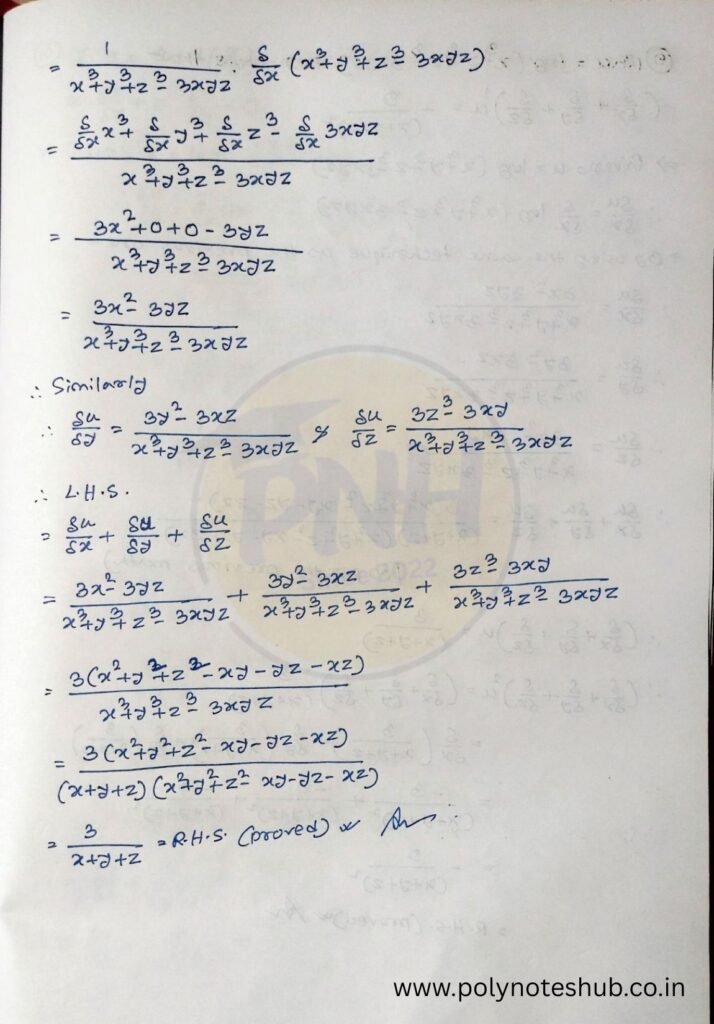 = 1/(x³+y³+z³-3xyz) · δ/δx (x³+y³+z³-3xyz)
= (δ/δx x³ + δ/δx y³ + δ/δx z³ - δ/δx 3xyz)/(x³+y³+z³-3xyz)
= (3x²+0+0-3yz)/(x³+y³+z³-3xyz)
= (3x²-3yz)/(x³+y³+z³-3xyz)
∴ Similarly
∴ δu/δy = (3y²-3xz)/(x³+y³+z³-3xyz) & δu/δz = (3z³-3xy)/(x³+y³+z³-3xyz)
∴ L.H.S.
= δu/δx + δu/δy + δu/δz
= (3x²-3yz)/(x³+y³+z³-3xyz) + (3y²-3xz)/(x³+y³+z³-3xyz) + (3z²-3xy)/(x³+y³+z³-3xyz)
= 3(x²+y²+z²-xy-yz-xz)/(x³+y³+z³-3xyz)
= 3(x²+y²+z²-xy-yz-xz)/((x+y+z)(x²+y²+z²-xy-yz-xz))
= 3/(x+y+z) = R.H.S. (proved) Ans
PNH
2022
www.polynoteshub.co.in